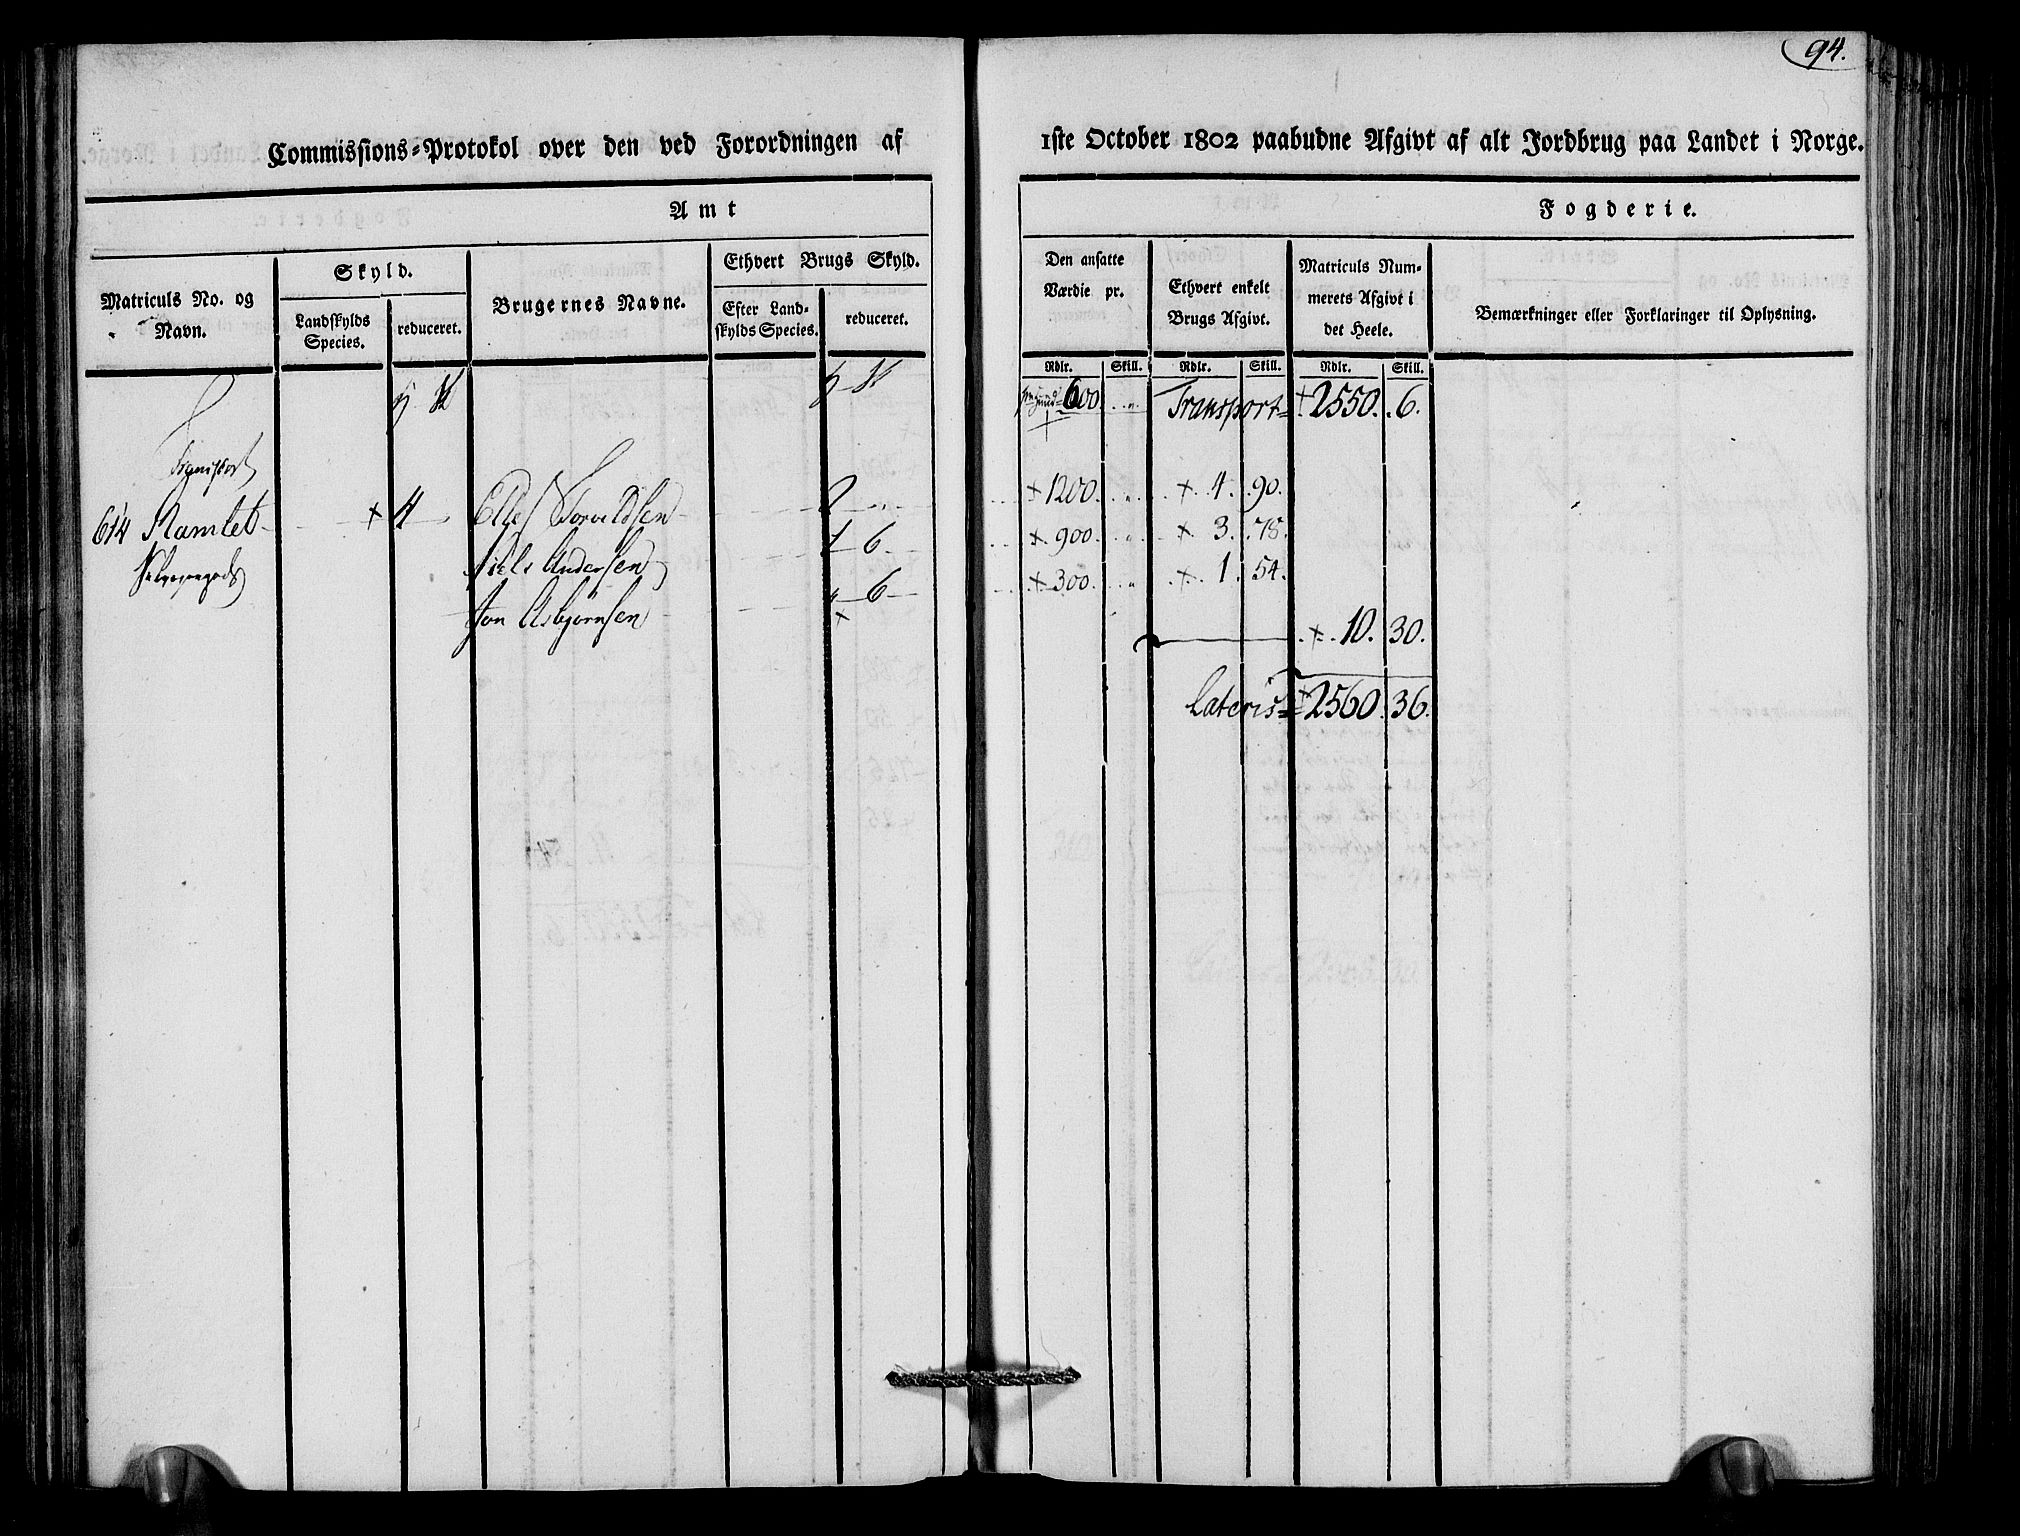 94.
Commissions-Protokol over den ved Forordningen af 1ste October 1802 paabudne Afgivt af alt Jordbrug paa Landet i Norge.
Amt Fogderie.
Matriculs No. og Navn. Skyld. Landskylds Species. reduceret. Brugernes Navne. Ethvert Brugs Skyld. Efter Landskylds Species. reduceret. Den ansatte Værdie pr. Ethvert enkelt Brugs Afgivt. Matriculs Nummerets Afgivt i det Heele. Bemærkninger eller Forklaringer til Oplysning.
Rdlr. Skill. Rdlr. Skill. Rdlr. Skill.
600. Transport = + 2550. 6.
Transport
614 Ramlet + 4 Torvildsen 2 + 1200. + 4. 90.
Selvejergods Niels Andersen 1 6 + 900. + 3. 78.
Jon Asbjørnsen 6 + 300. + 1. 54.
+ 10. 30.
Lateris = + 2560. 36.